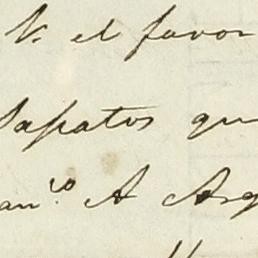 V. el favor
Sapatos qu
an.co A Arg